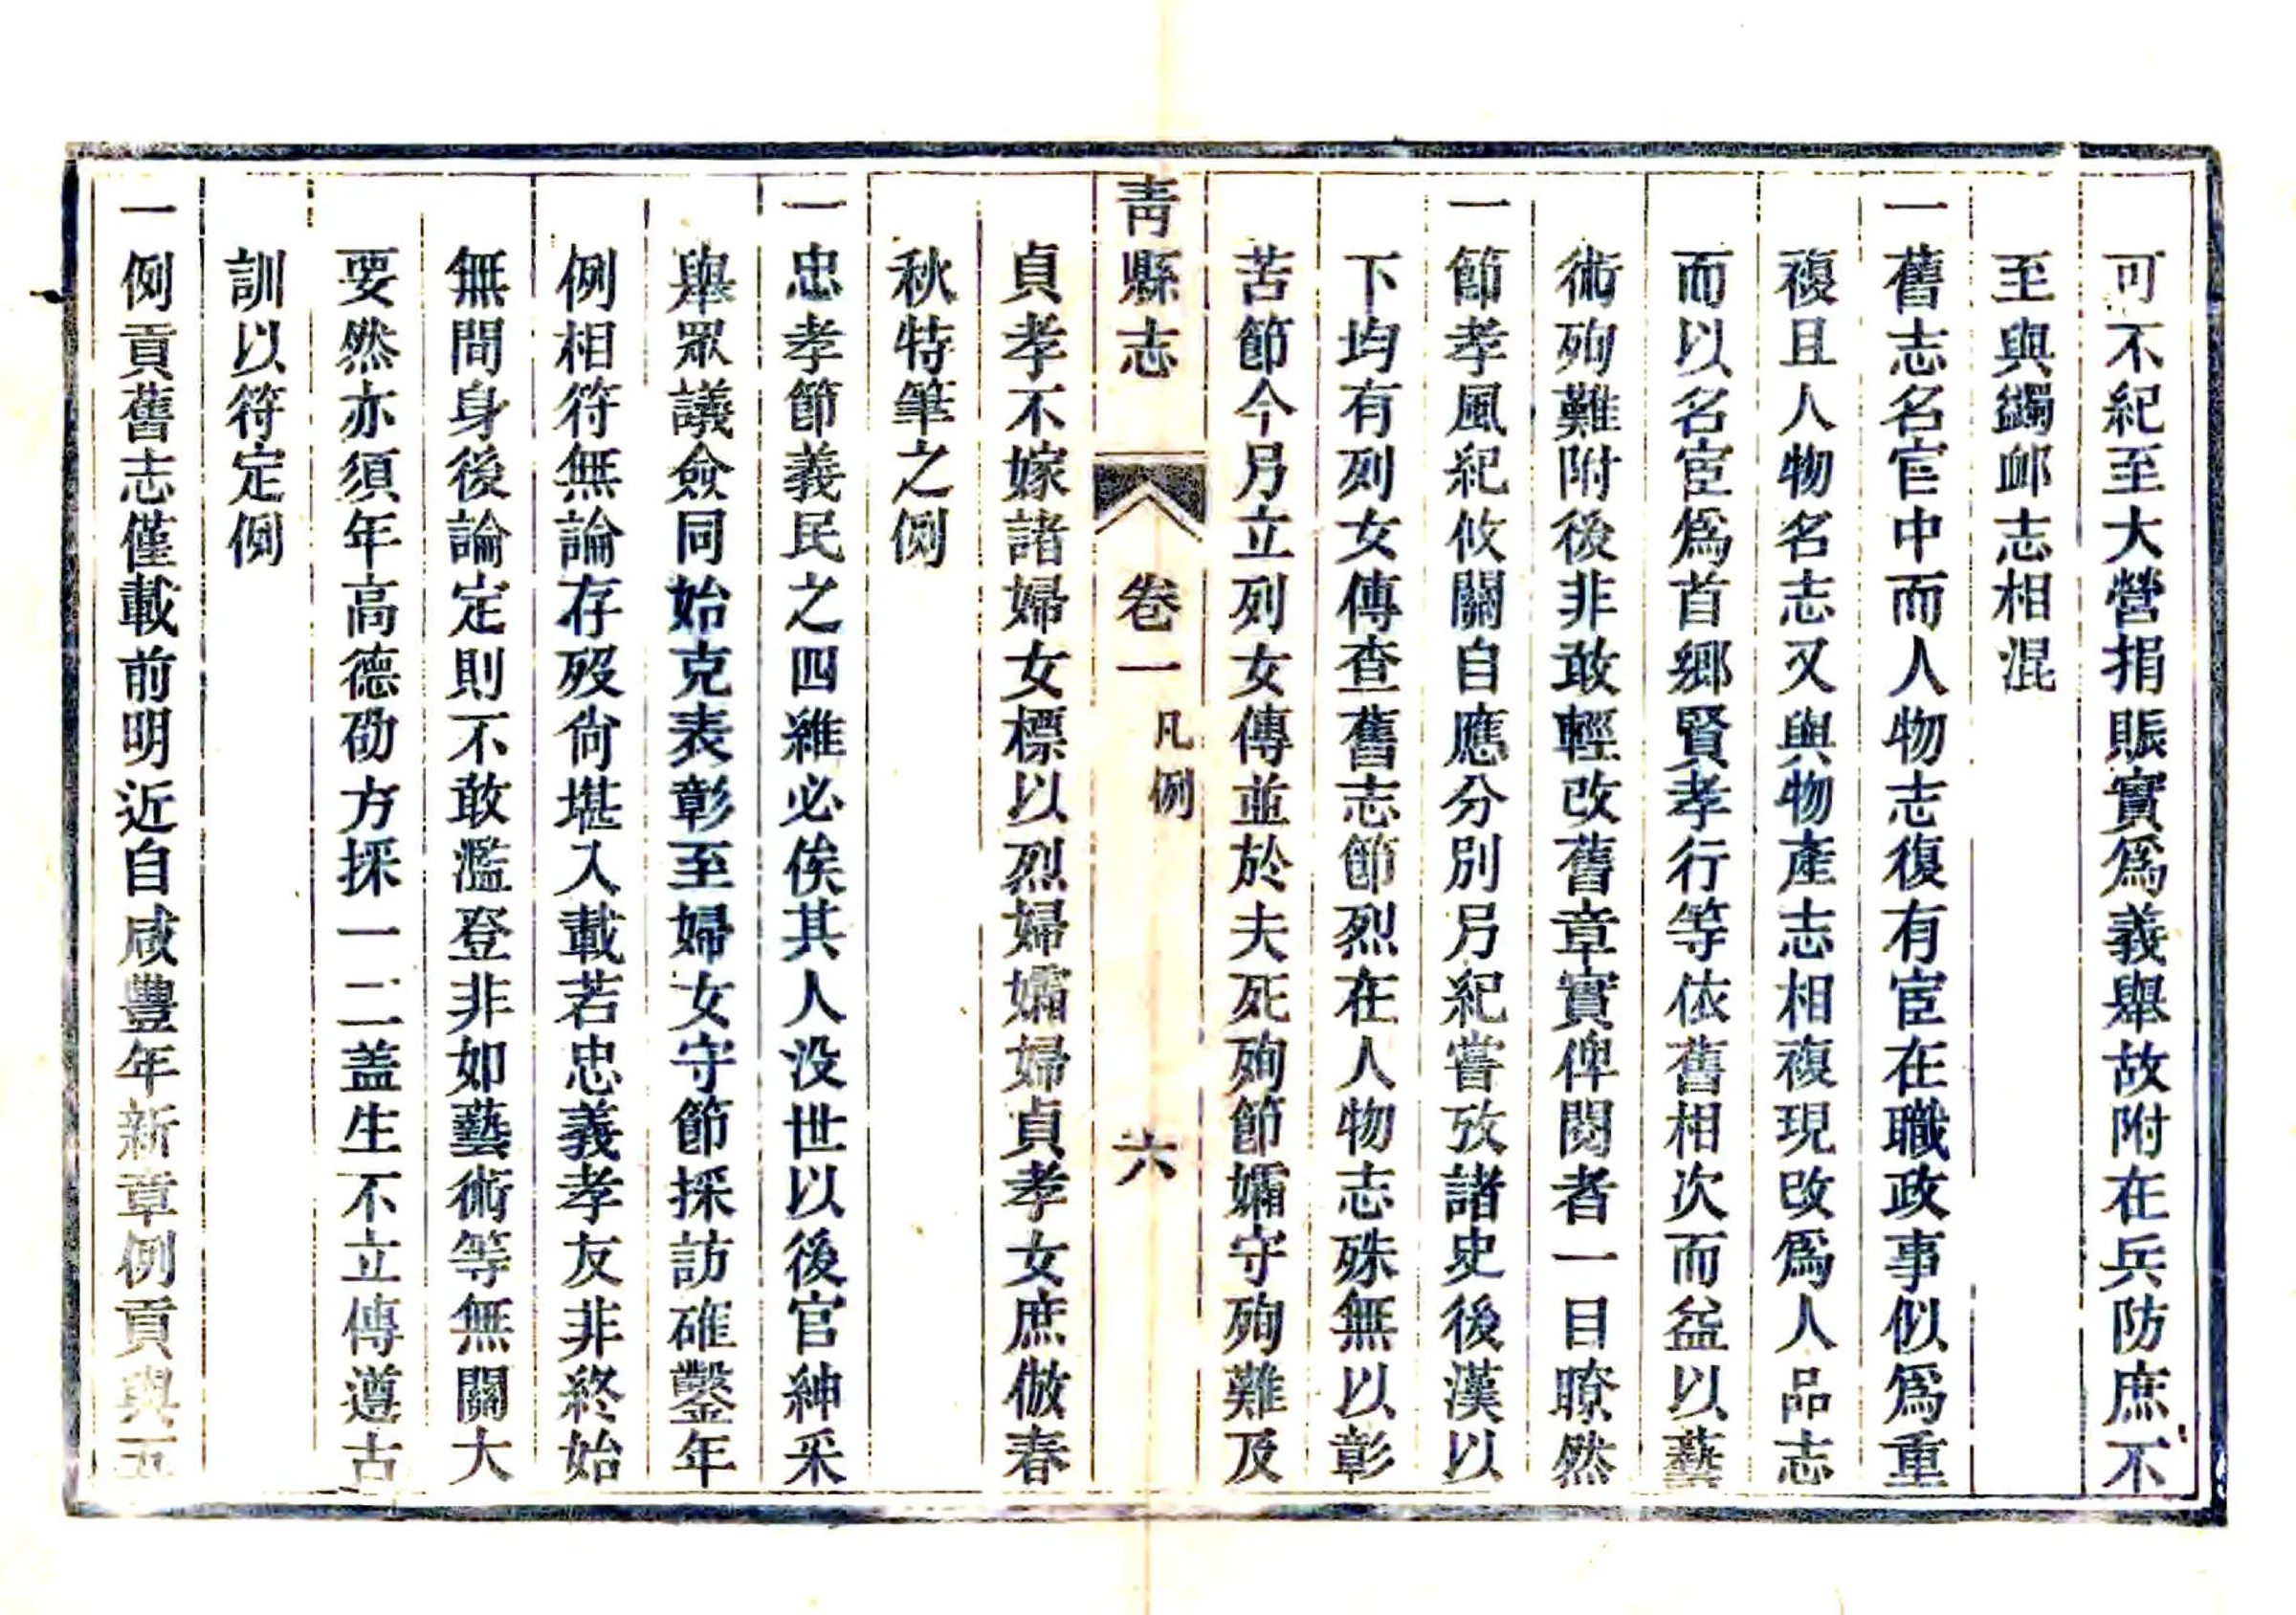 可不紀至大營捐賑實爲義舉故附在兵防庶不
至與蠲邮志相混
一舊志名官中而人物志復有宦在職政事似爲重
複且人物名志又與物產志相複現改爲人品志
而以名宦爲首鄉賢孝行等依舊相次而益以藝
術殉難附後非敢輕改舊章實俾閱者一目瞭然
一節孝風紀攸關自應分別另紀嘗攷諸史後漢以
下均有列女傳查舊志節烈在人物志殊無以彰
苦節今另立列女傳並於夫死殉節孀守殉難及
青縣志 卷一 凡例 六
貞孝不嫁諸婦女標以烈婦孀婦貞孝女庶倣春
秋特筆之例
一忠孝節義民之四維必俟其人没世以後官紳采
舉眾議僉同始克表彰至婦女守節採訪確鑿年
例相符無論存歿尙堪入載若忠義孝友非終始
無間身後論定則不敢濫登非如藝術等無關大
要然亦須年高德劭方採一二盖生不立傳遵古
訓以符定例
一例貢舊志僅載前明近自咸豐年新章例貢與五